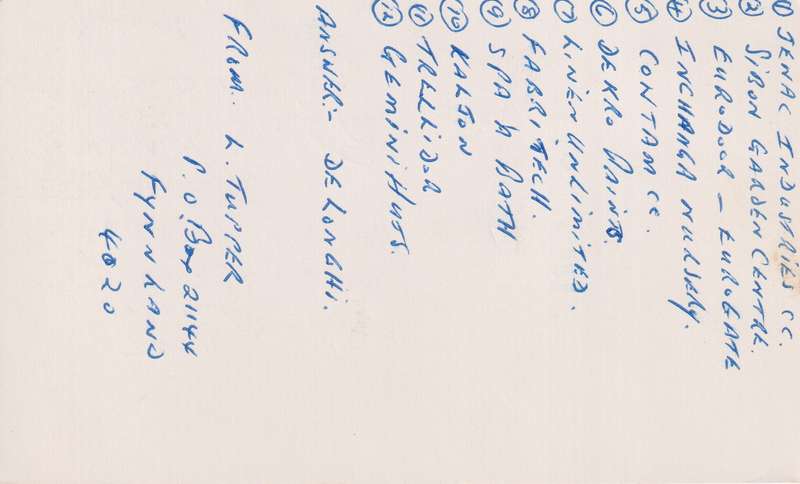 ① JENAC INDUSTRIES CC.
② SIBON GARDEN CENTRE.
③ EURODOOR - EUROGATE
④ INCHANGA NURSERY.
⑤ CONTAM CC.
⑥ DEKRO PAINTS.
⑦ LINEN UNLIMITED.
⑧ FABRITECH.
⑨ SPA N BATH
⑩ KALTON
⑪ TRELLIDOR
⑫ GEMINI HUTS.
ANSWER:- DELONGHI.
FROM. L. TUPPER
P.O. Box 21144
FYNNLAND
4020